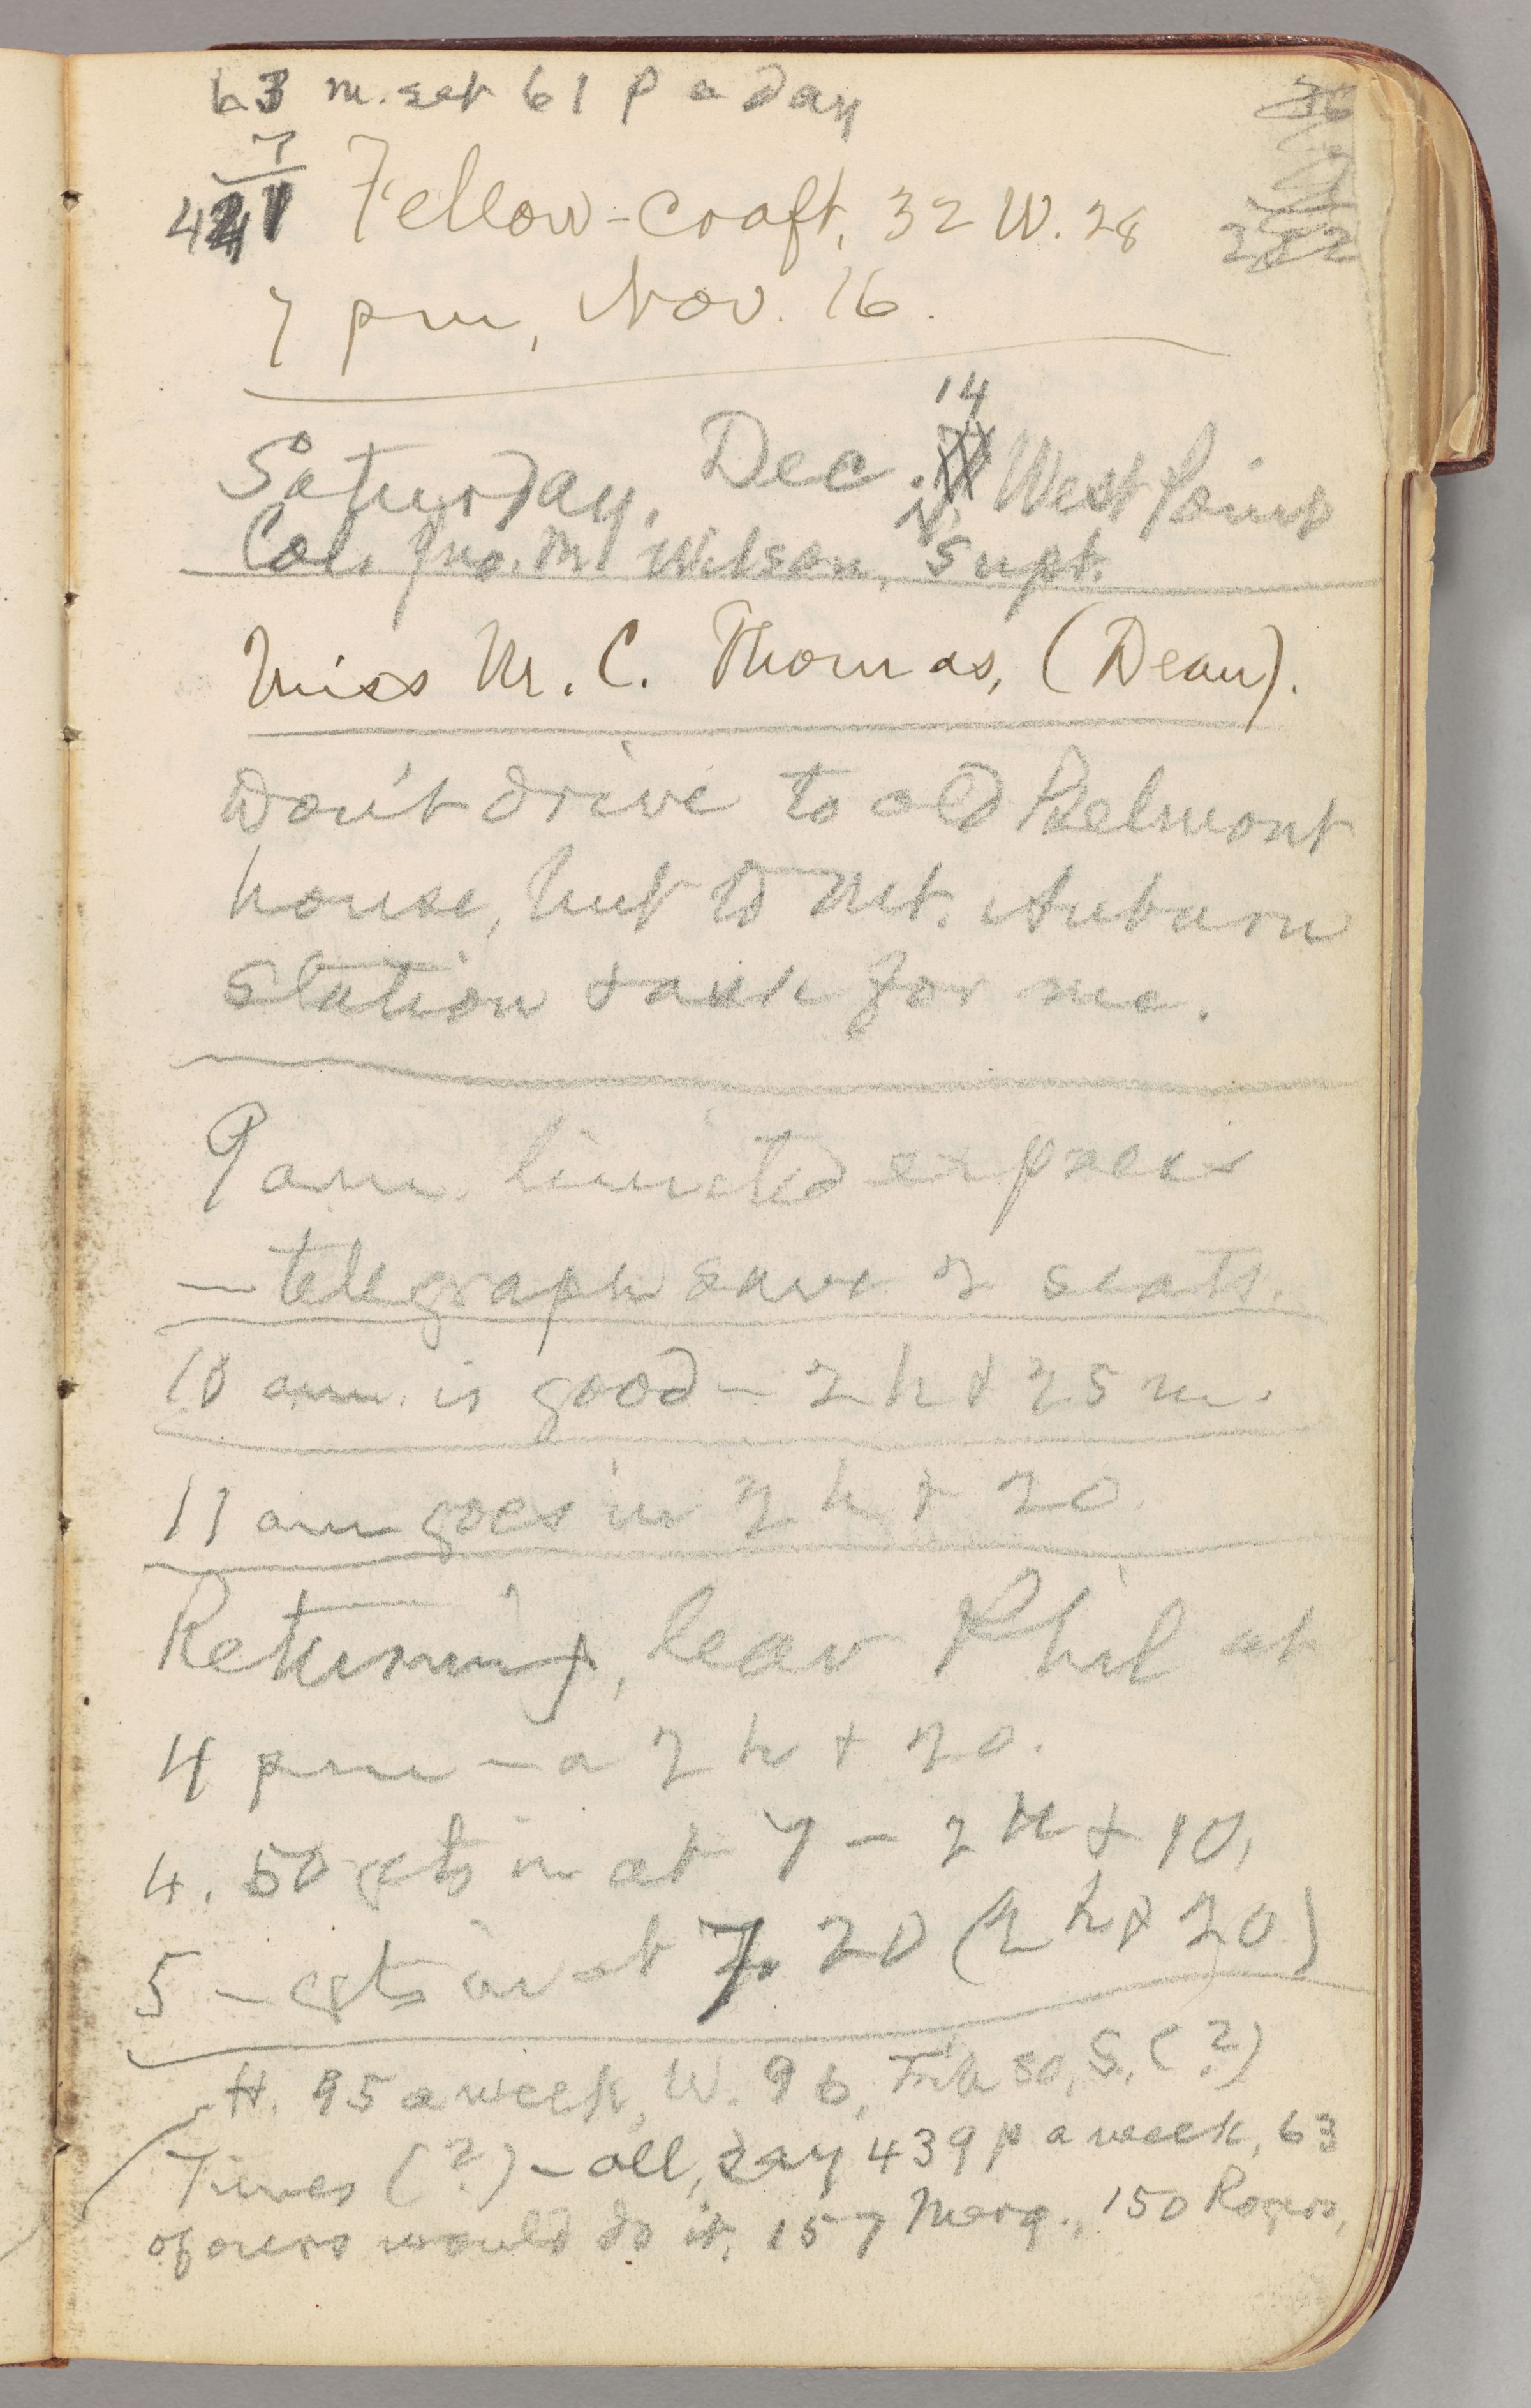 63 m. set 61 p a day
7
441 Fellow-craft, 32 W. 28
7 pm, Nov. 16.
14
Saturday, Dec. West Point
Col. Jno. M. Wilson, Supt.
Miss M. C. Thomas, (Dean).
Don't drive to old Belmont
house, but to Mt. Auburn
Station & ask for me.
9 am. limited express
— telegraph save 2 seats.
10 am. is good — 2 h & 25 m.
11 am goes in 2 h & 20.
Returning, leav Phil at
4 pm — a 2 h + 20.
4.50 gets in at 7 — 2 h & 10,
5 — gets in at 7. 20 (2 h & 20)
H. 95 a week, W. 96, Trib 50, S. (?)
Times (?) — all, say 439 p a week, 63
of ours would do it. 157 Merg., 150 Rogers,